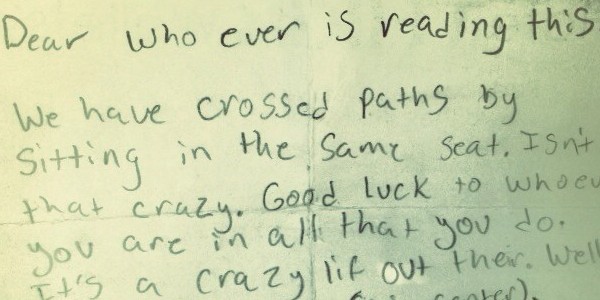 Dear who ever is reading this
We have crossed paths by
sitting in the same seat. Isn't
that crazy. Good luck to whoev
you are in all that you do.
It's a crazy lif out their. Well